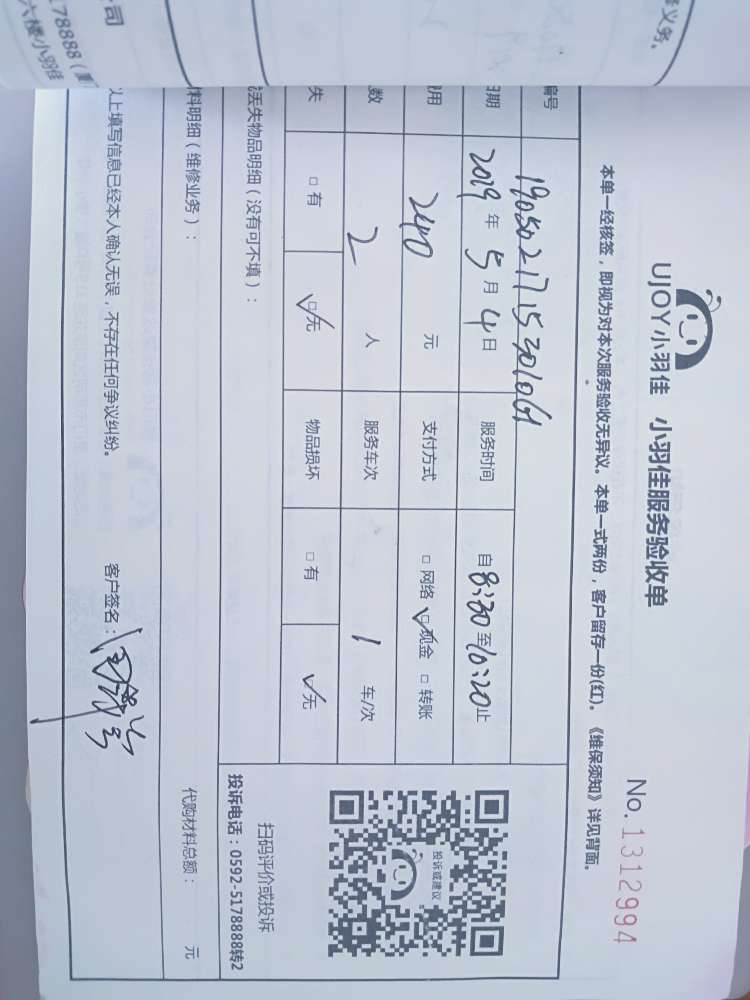 UJOY小羽佳 小羽佳服务验收单
No.1312994
本单一经核签，即视为对本次服务验收无异议。本单一式两份，客户留存一份(红)。《维保须知》详见背面。
编号
日期 2019 年 5 月 4 日 服务时间 自 8:30 至 10:20 止
费用 240 元 支付方式 □ 网络 ☑ 现金 □ 转账
数 2 人 服务车次 1 车/次
失 □ 有 ☑ 无 物品损坏 □ 有 ☑ 无
投诉或建议
扫码评价或投诉
投诉电话：0592-5178888转2
丢失物品明细（没有可不填）：
料明细（维修业务）：
代购材料总额： 元
以上填写信息已经本人确认无误，不存在任何争议纠纷。
客户签名：
义务。
司
178888（
六楼小羽佳